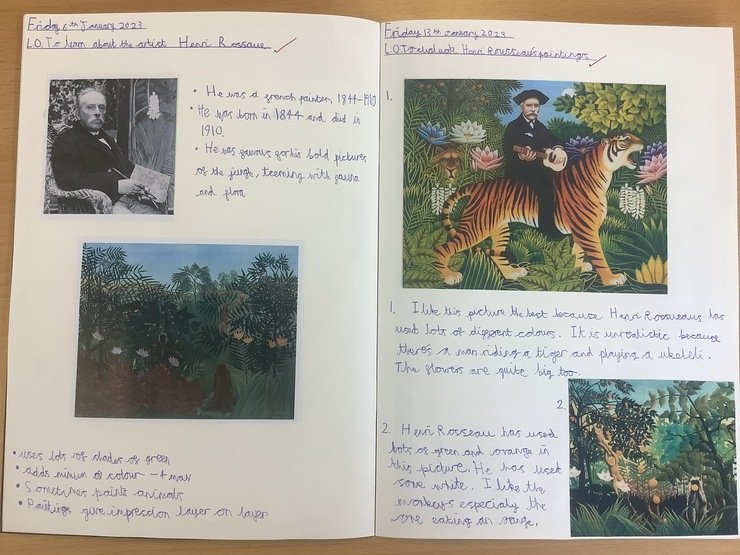 Friday 6th January 2023
L.O. To learn about the artist Henri Rossaue
• He was a french painter. 1844-1910
• He was born in 1844 and did in
1910.
• He was famous for his bold pictures
of the jungle, teeming with fauna
and flora
• uses lots of shades of green
• adds minum of colour - 4 max
• Sometimes paints animals
• Paintings give impression layer on layer
Friday 13th January 2023
L.O. To evaluate Henri Rousseau's paintings
1.
1. I like this picture the best because Henri Rossueaus has
used lots of different colours. It is unrealistic because
there's a man riding a tiger and playing a ukeleli.
The flowers are quite big too.
2.
2. Henri Rosseau has used
lots of green and orange in
this picture. He has used
some white. I like the
monkeys especialy the
one eating an orange.